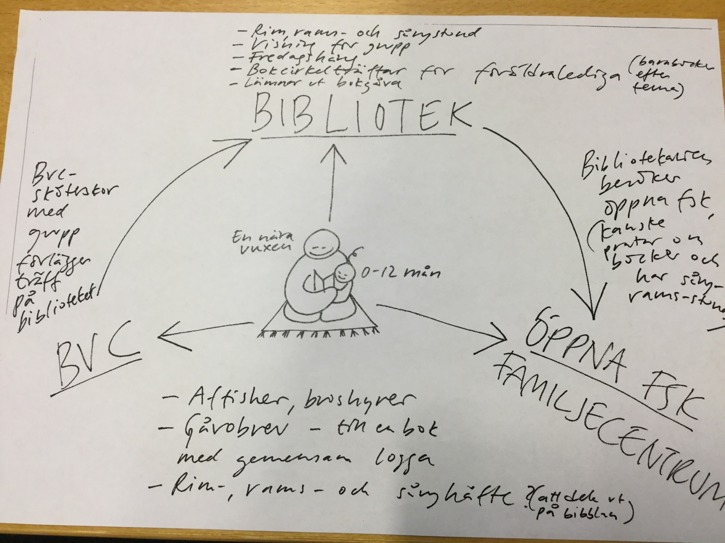 - Rim, rams- och sångstund
- Visning för grupp
- Fredagshäng
- Bokcirkelträffar för föräldralediga (barnböcker efter tema)
- Lämnar ut bokgåva
BIBLIOTEK
BVC-
sköterskor
med
grupp
förlägger
träff
på
biblioteket
Bibliotekarien
besöker
öppna fsk,
(kanske
pratar om
böcker och
har sång-
rams-stund)
En nära
vuxen
0-12 mån
BVC
ÖPPNA FSK
FAMILJECENTRUM
- Affisher, broshyrer
- Gåvobrev - till en bok
med gemensam logga
- Rim-, rams- och sånghäfte? (att dela ut
på bibblan)